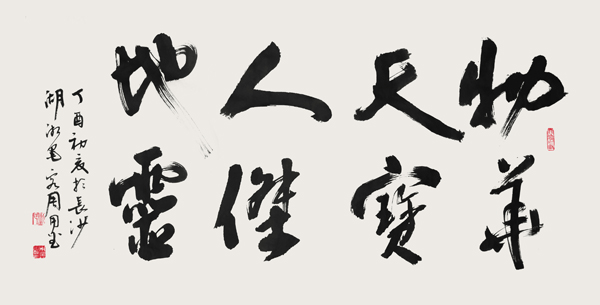 物華
天寶
人傑
地靈
丁酉初夏於長沙
湖湘墨客周用